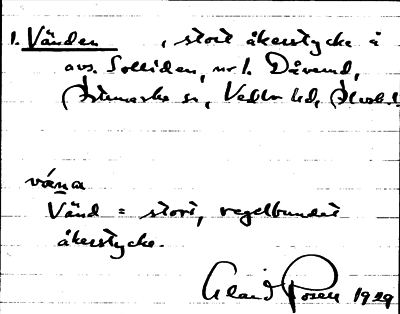 1. Vänden , stort åkerstycke å
avs. Solliden, nr 1. Dåvemd,
Östermarks sn, Vedbo hd, Älvsb. l.
värna
Vänd = stort, regelbundet
åkerstycke.
Claid Rosen 1929